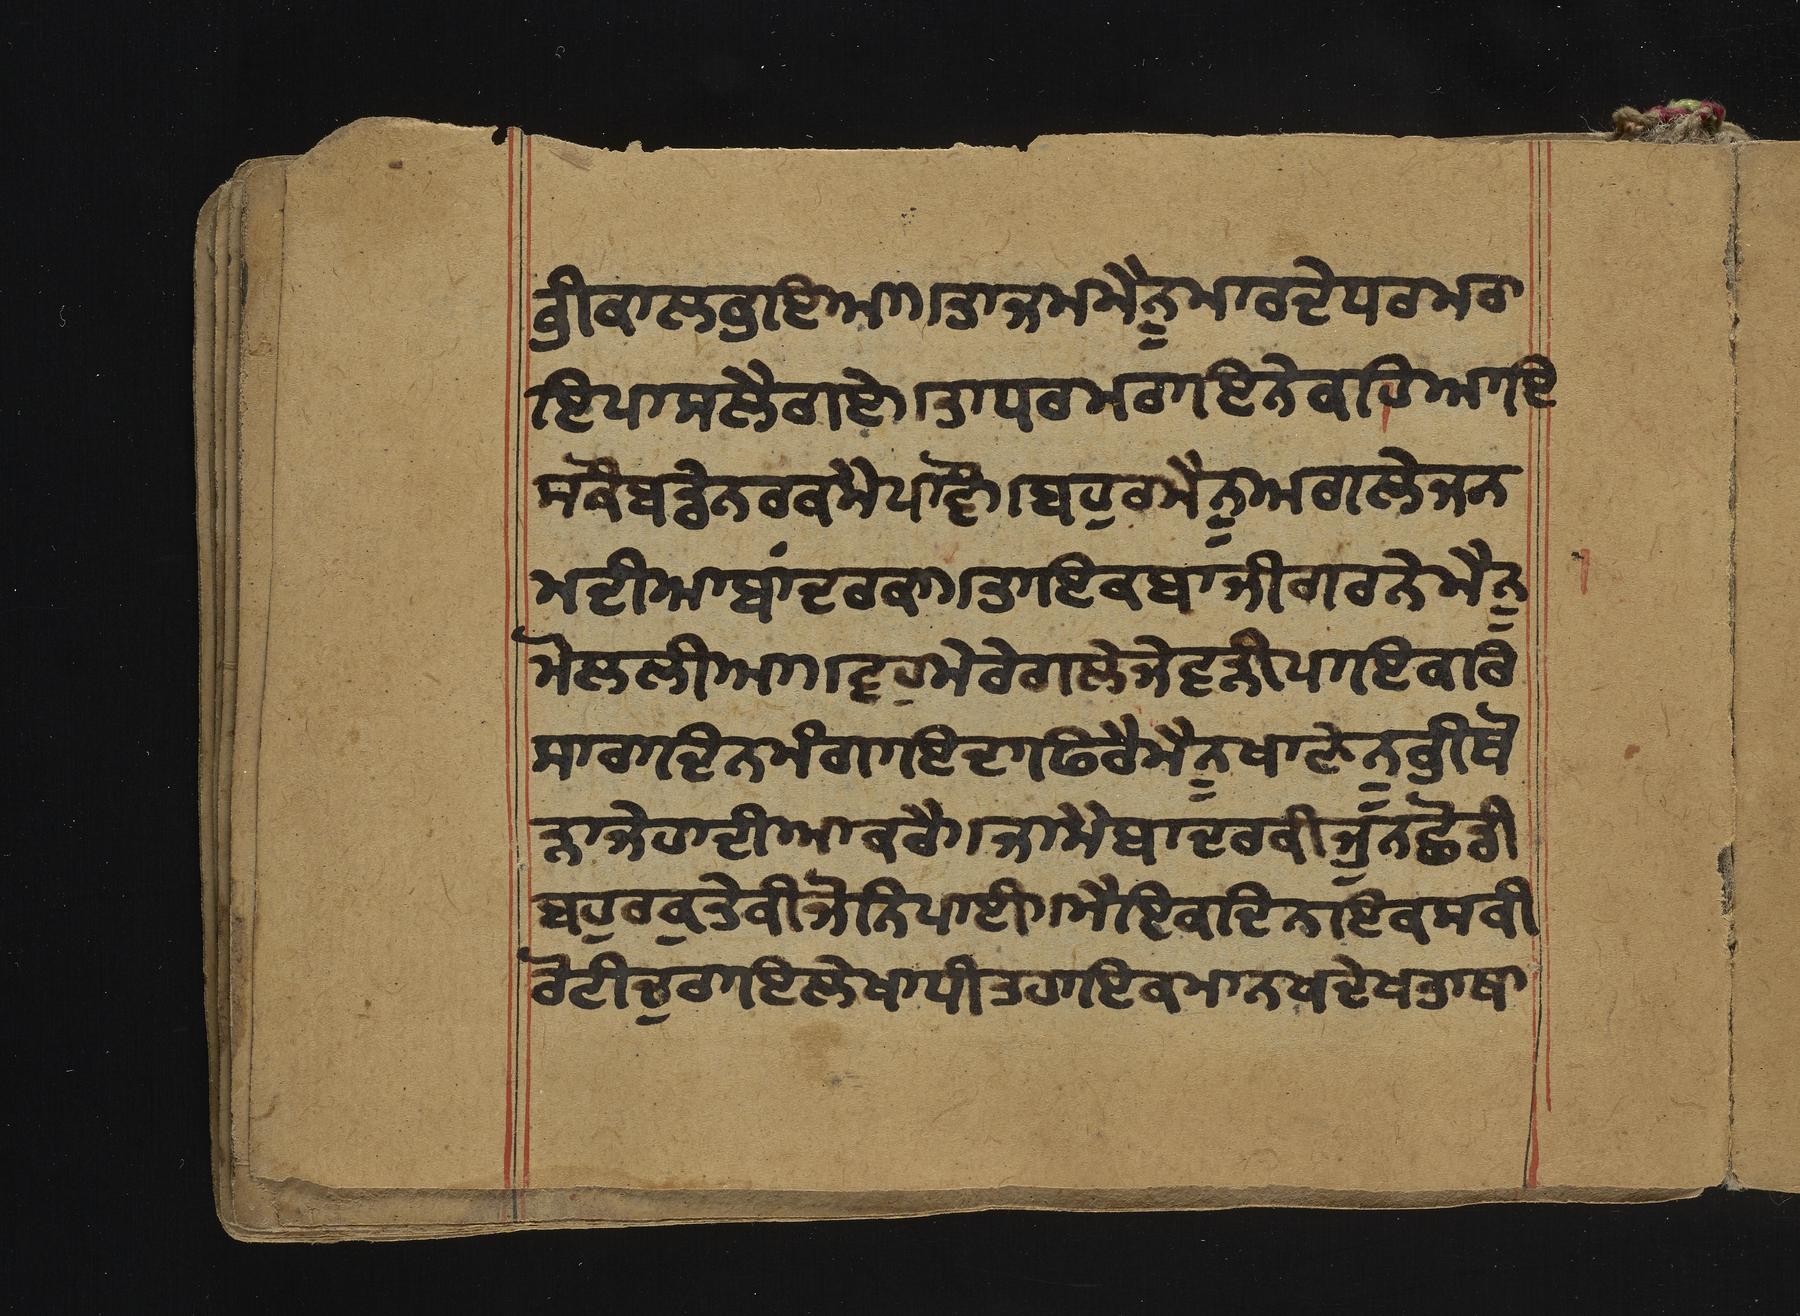 ਭੀਕਾਲਭੁਾਇਆ।ਤਾਜਮਮੈਨੂਮਾਰਦੇਧਰਮਰਾ
ਇਪਾਸਲੈਗਏ।ਤਾਧਰਮਰਾਇਨੇਕਹਿਆਇ
ਸਕੌਬਡੇਨਰਕਮੈਪਾਵੋ।ਬਹੁਰਮੈਨੂਅਗਲੇਜਨ
ਮਦੀਆਬਾਂਦਰਕਾ।ਤਾਇਕਬਾਜੀਗਰਨੇਮੈਨੂ
ਮੋਲਲੀਆ।ਵਹੁਮੇਰੇਗਲੇਜੇਵੜੀਪਾਇਕਰਿ
ਸਾਰਾਦਿਨਮੰਗਾਇਦਾਫਿਰੈਮੈਨੂਖਾਣੇਨੂਭੀਥੋ
ੜਾਜੇਹਾਦੀਆਕਰੈ।ਜਾਮੈਬਾਦਰਕੀਜੂਨਛੋਰੀ
ਬਹੁਰਕੁਤੇਕੀਜੋਨਿਪਾਈ।ਮੈਇਕਦਿਨਇਕਸਕੀ
ਰੋਟੀਚੁਰਾਇਲੇਖਾਧੀਤਹਾਇਕਮਾਨਖਦੇਖਤਾਥਾ